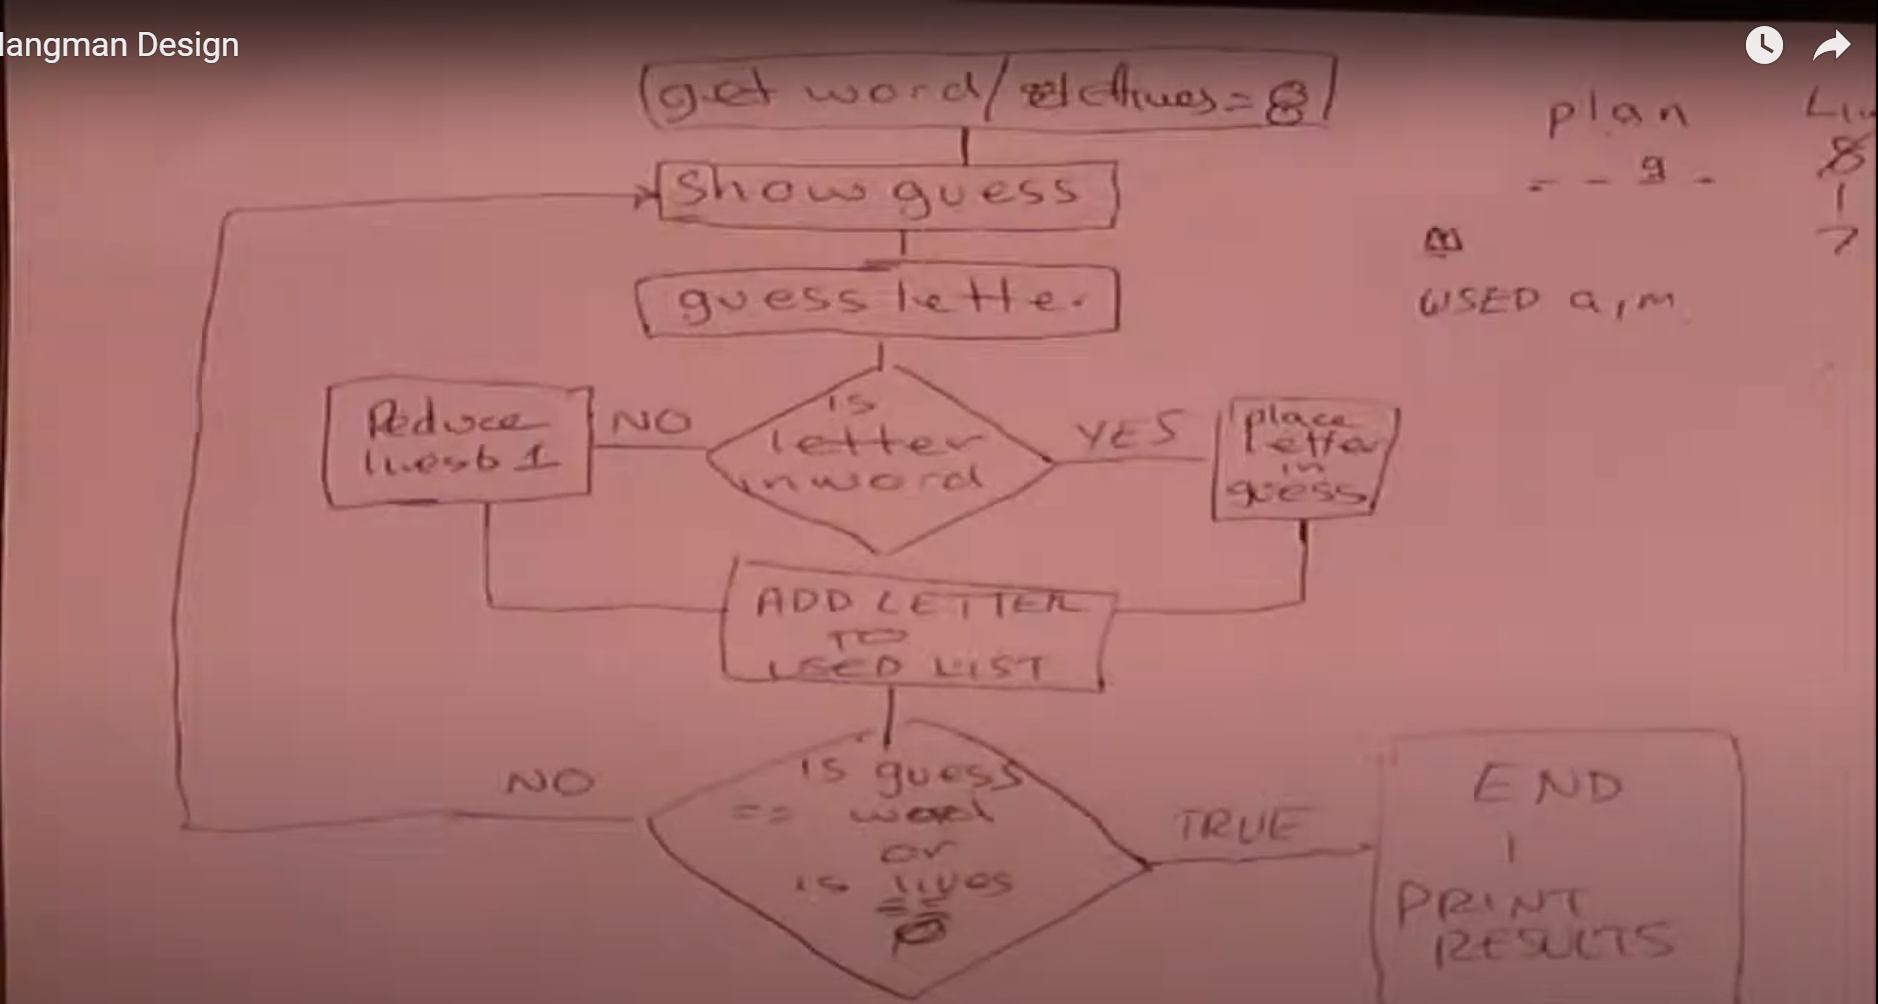 langman Design
get word/ set lives = 8
show guess
guess letter
is
letter
in word
NO
YES
Reduce
lives by 1
place
letter
in
guess
ADD LETTER
TO
USED LIST
is guess
== word
or
is lives
==
0
NO
TRUE
END
PRINT
RESULTS
plan
- - a -
m
USED a, m
Liv
8
1
7